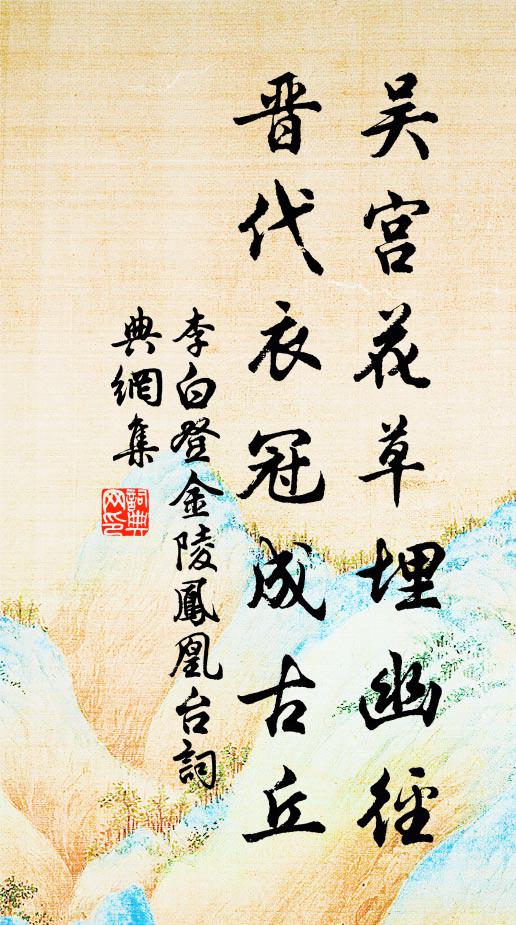 吴宫花草埋幽径
晋代衣冠成古丘
李白登金陵鳳凰台詞
典網集
詞典网印